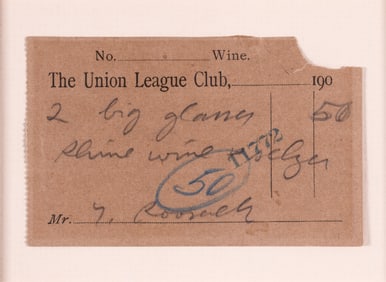 No. Wine.
The Union League Club, 190
2 big glasses 50
Rhine wine + selzer
11772
50
Mr. T. Roosevelt